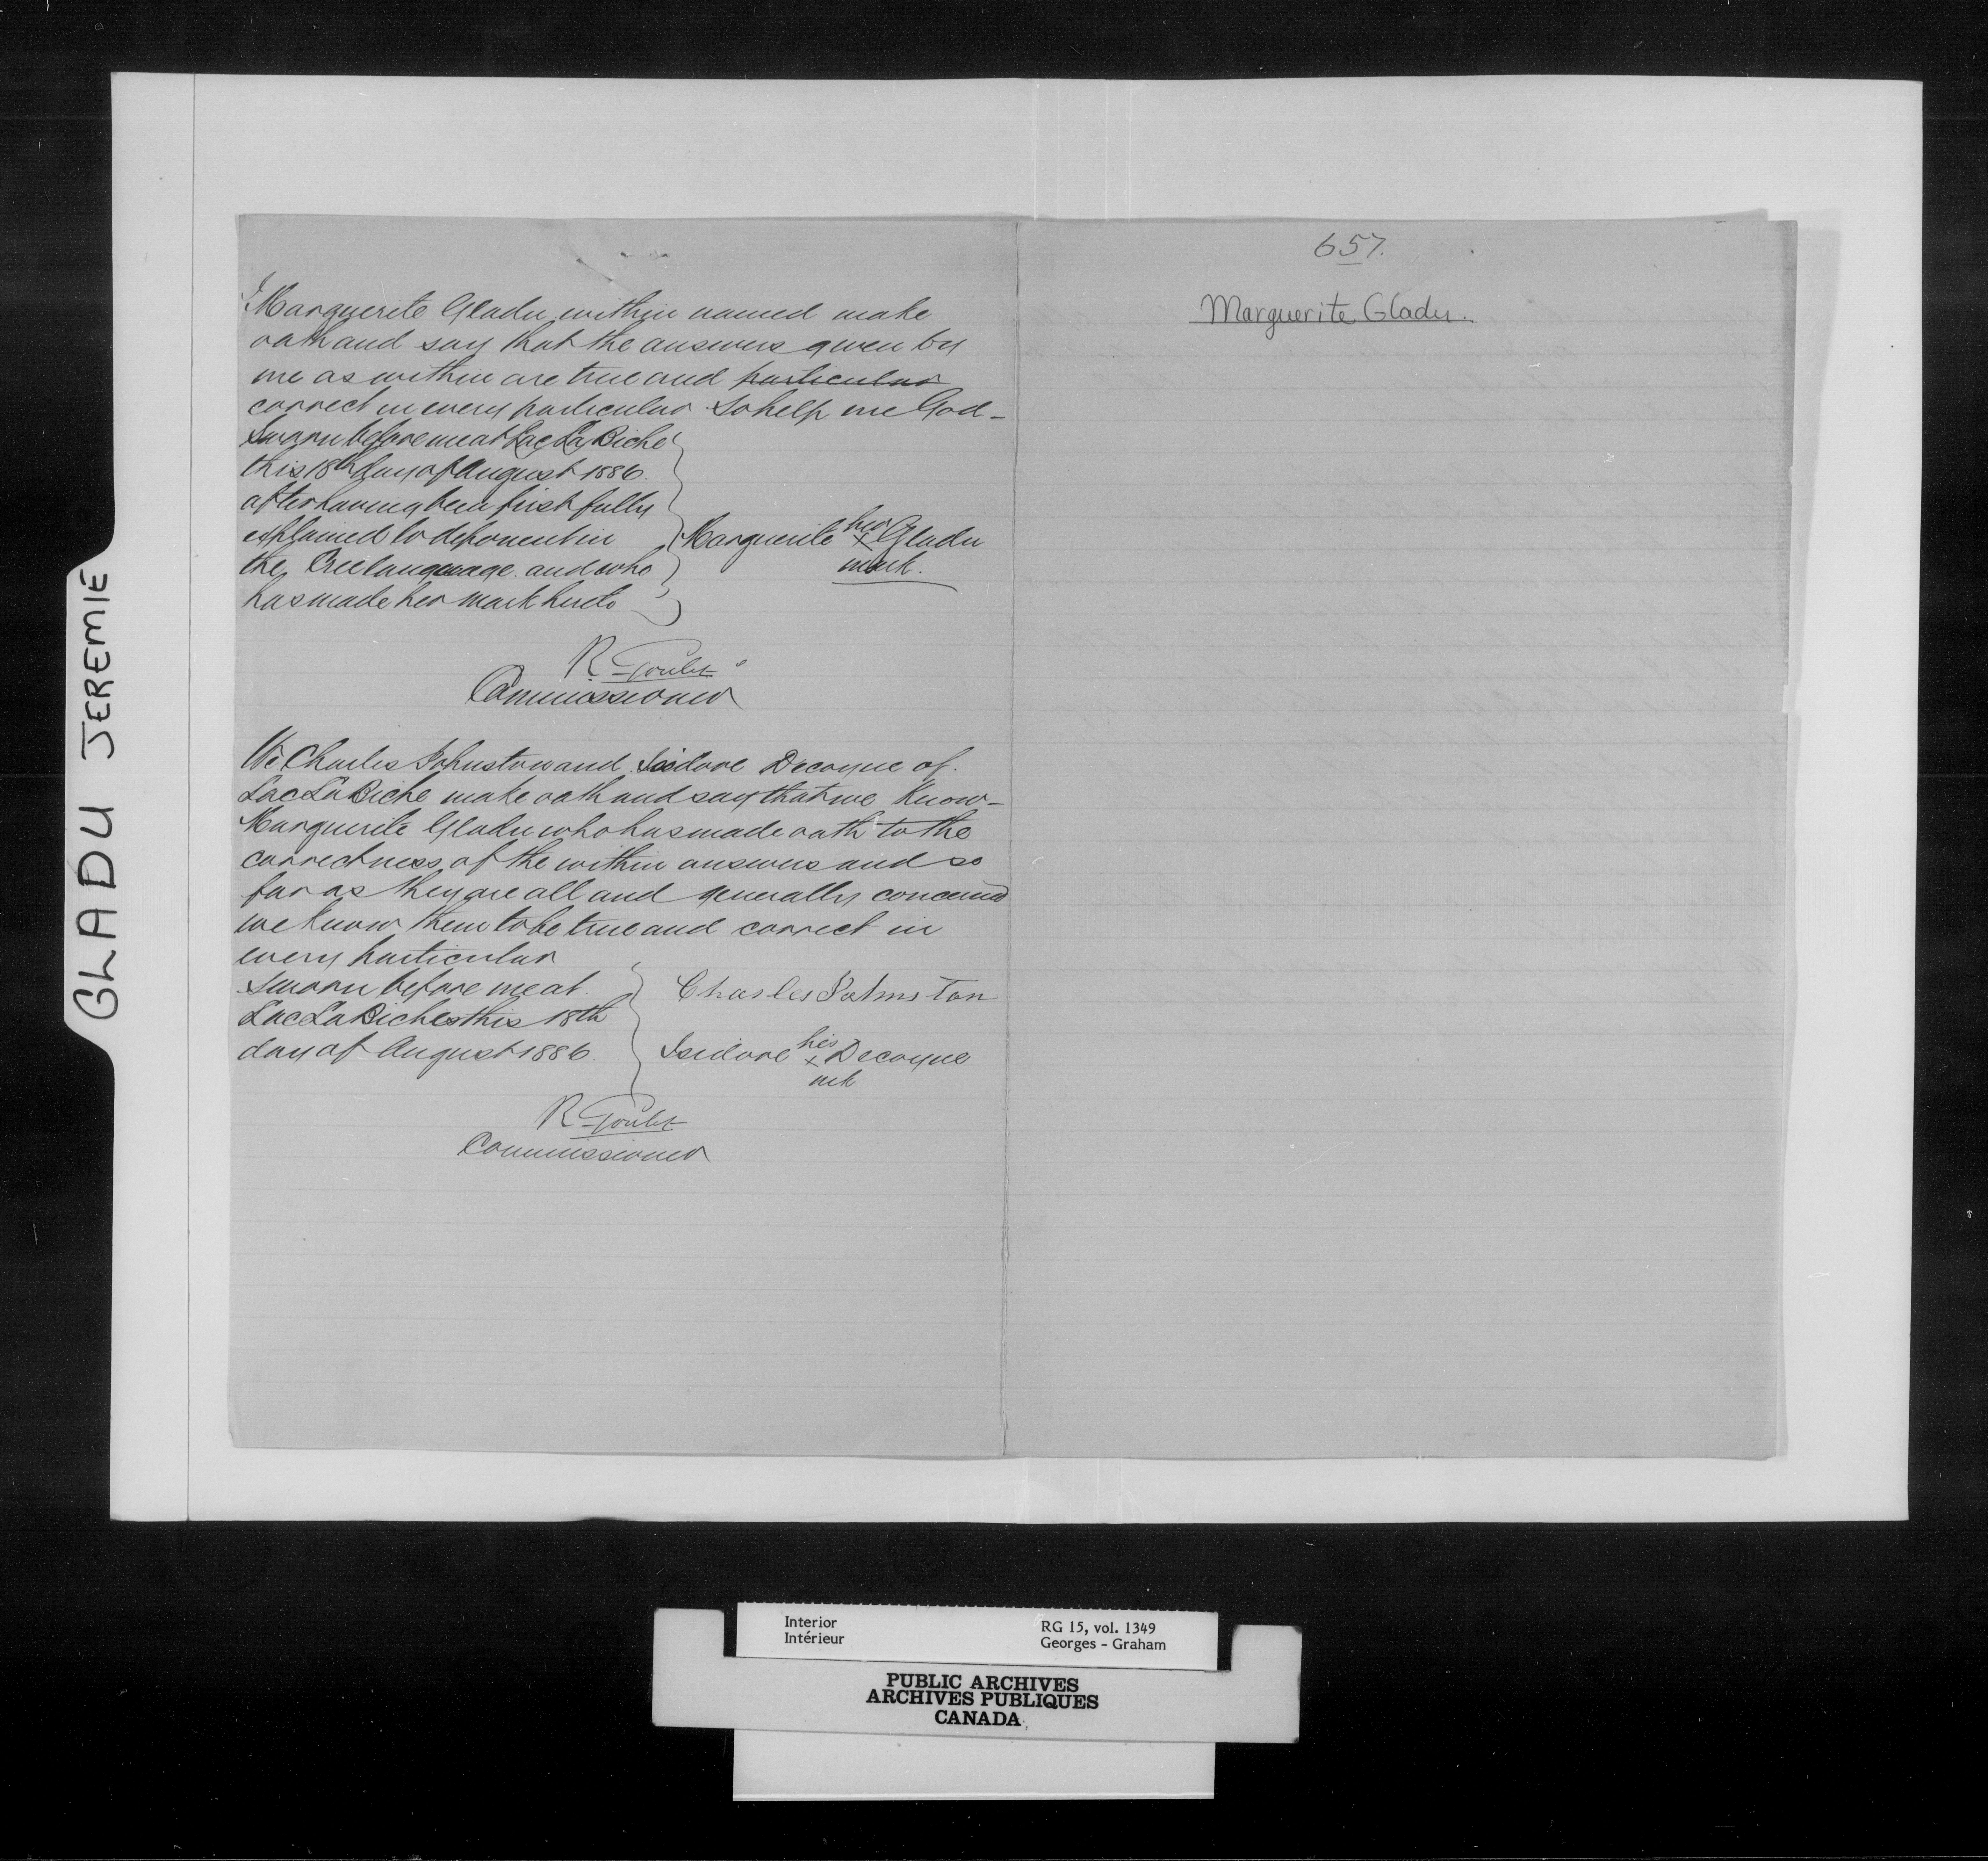 GLADU JEREMIE
I Marguerite Gladu within named make
oath and say that the answers given by
me as within are true and particular
correct in every particular So help me God -
Sworn before me at Lac La Biche
this 18th day of August 1886.
after having been first fully
explained to deponent in
the Cree language and who
has made her mark hereto
Marguerite her x Gladu
mark.
R Goulet
Commissioner
We Charles Johnston and Isidore Decoyne of
Lac La Biche make oath and say that we know -
Marguerite Gladu who has made oath to the
correctness of the within answers and so
far as they are all and generally concerned
we know them to be true and correct in
every particular
Sworn before me at
Lac La Biche this 18th
day of August 1886.
Charles Johnston
Isidore his x Decoyne
mk
R Goulet
Commissioner
657.
Marguerite Gladu.
Interior
Intérieur
RG 15, vol. 1349
Georges - Graham
PUBLIC ARCHIVES
ARCHIVES PUBLIQUES
CANADA